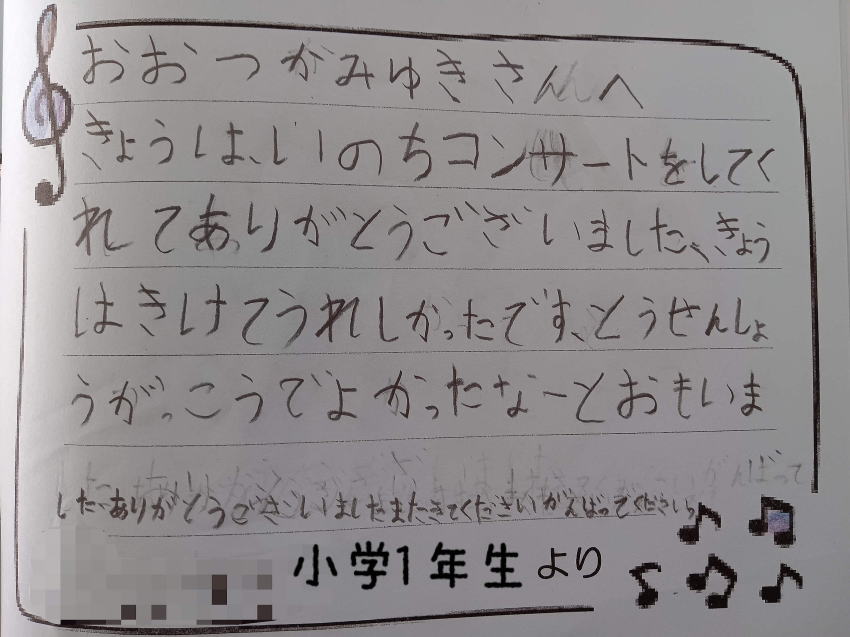 おおつがみゆきさんへ
きょうは、いのちコンサートをしてく
れてありがとうございました、きょう
はきけてうれしかったです、とうせんしょ
うがっこうでよかったなーとおもいま
した、ありがとうございいましたまたきてくださいがんばってください
小学1年生より